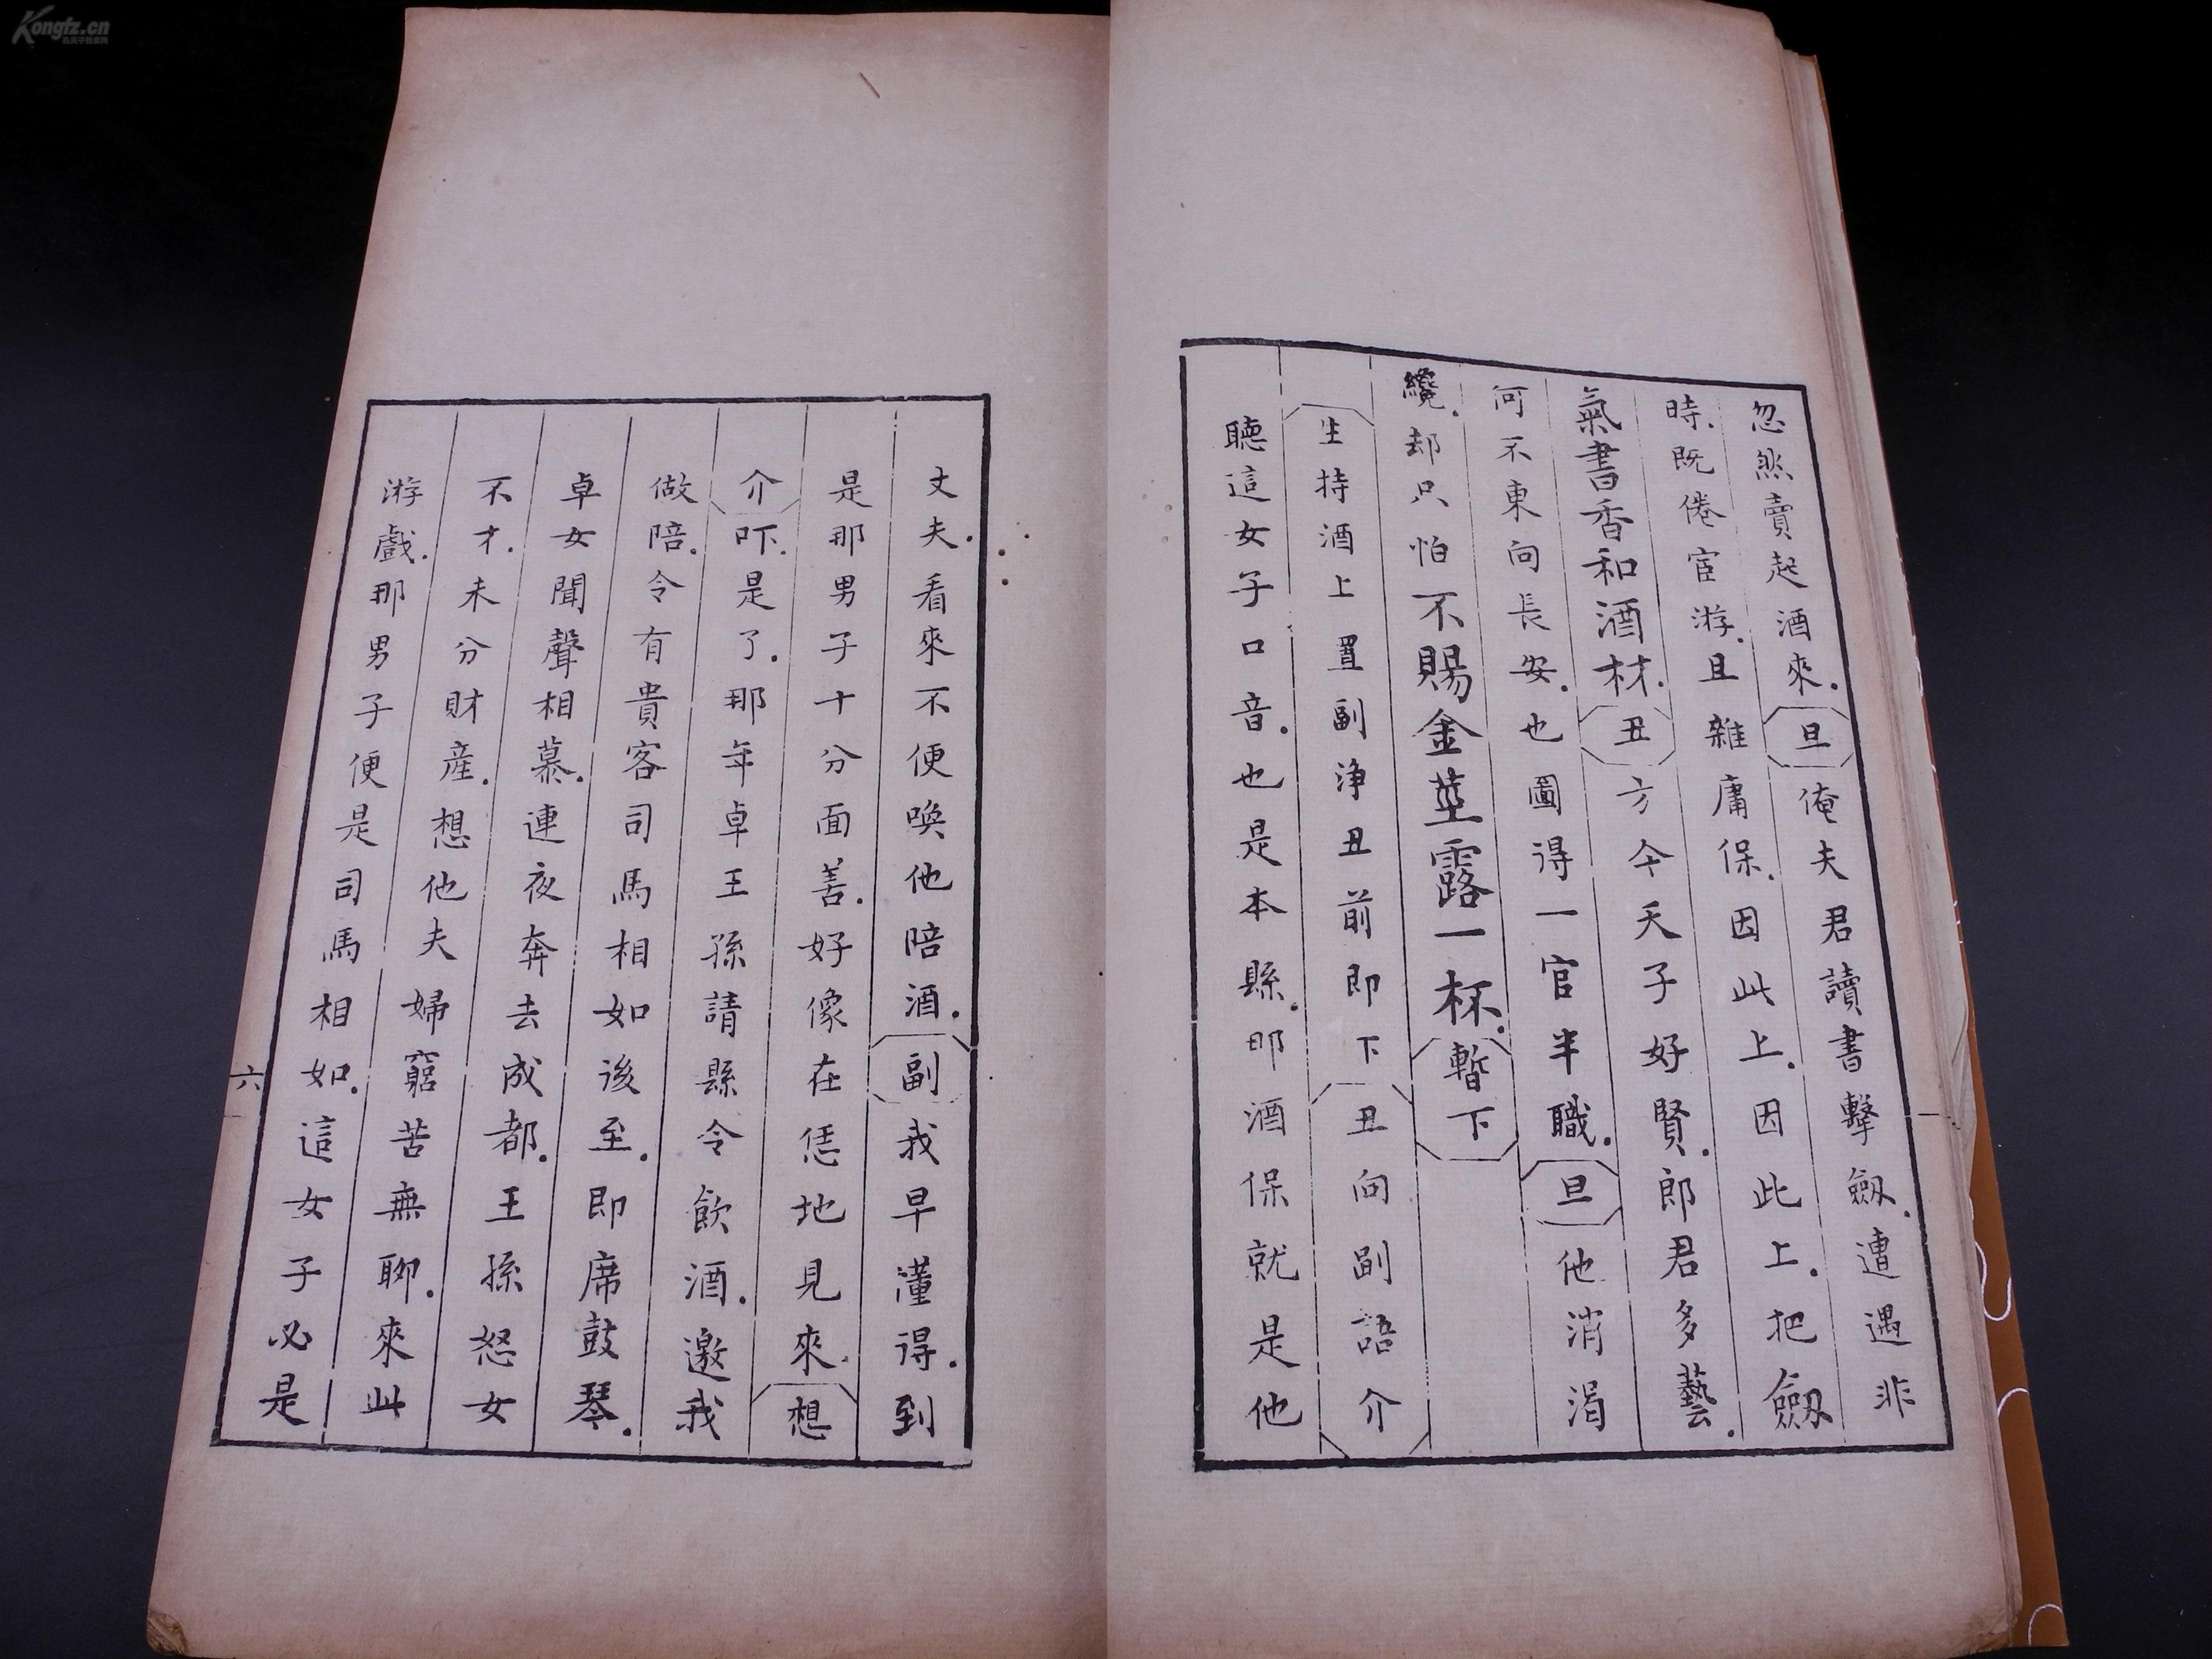 忽然賣起酒來.旦俺夫君讀書擊劒.遭遇非
時.既倦宦游.且雜庸保.因此上.因此上.把劒
氣書香和酒材.丑方今天子好賢.郎君多藝.
何不東向長安.也圖得一官半職.旦他消渴
纔.却只怕不賜金莖露一杯.暫下
生持酒上置副淨丑前即下丑向副語介
聽這女子口音.也是本縣.那酒保就是他
丈夫.看來不便喚他陪酒.副我早懂得.到
是那男子十分面善.好像在恁地見來.想
介吓.是了.那年卓王孫請縣令飲酒.邀我
做陪.令有貴客司馬相如後至.即席鼓琴.
卓女聞聲相慕.連夜奔去成都.王孫怒女
不才.未分財産.想他夫婦窮苦無聊.來此
游戲.那男子便是司馬相如.這女子必是
六
Kongfz.cn